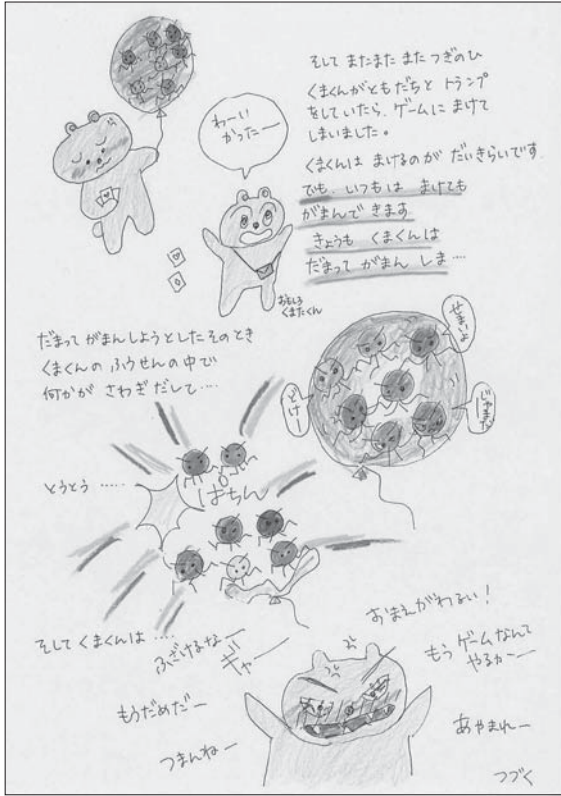 そして またまた また つぎのひ
くまくんがともだちと トランプ
をしていたら、ゲームに まけて
しまいました。
くまくんは まけるのが だいきらいです
でも、いつもは まけても
がまんできます
きょうも くまくんは
だまって がまん しま‥‥
わーい
かったー
おもしろ
くまたくん
だまって がまんしようとしたそのとき
くまくんの ふうせんの中で
何かが さわぎだして‥‥
せまいよ
どけー
じゃまだ
とうとう‥‥‥
ぱちん
そして くまくんは‥‥
ふざけるなー
ギャー
おまえがわるい!
もう ゲームなんて
やるかー
もうだめだー
つまんねー
あやまれー
つづく